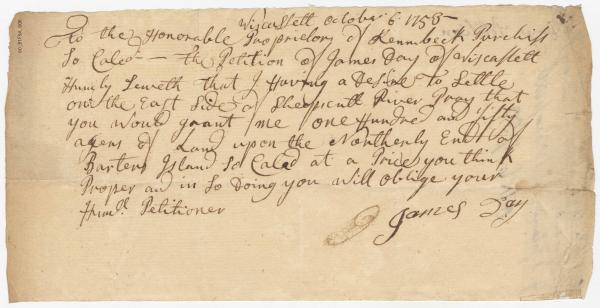 Wiscassett October 6 1755
To the Honorable Proprietors of Kennebeck Purchiss
So Caled — the Petition of James Day of Wiscassett
Humly Seweth that I Having a Desire to Settle
on the East Side of Sheepscutt River Pray that
you would grant me one Hundred and fifty
acers of Land upon the Northerly End of
Barters Island So Caled at a Price you think
Proper and in So Doing you will oblige your
Huml. Petitioner
James Day